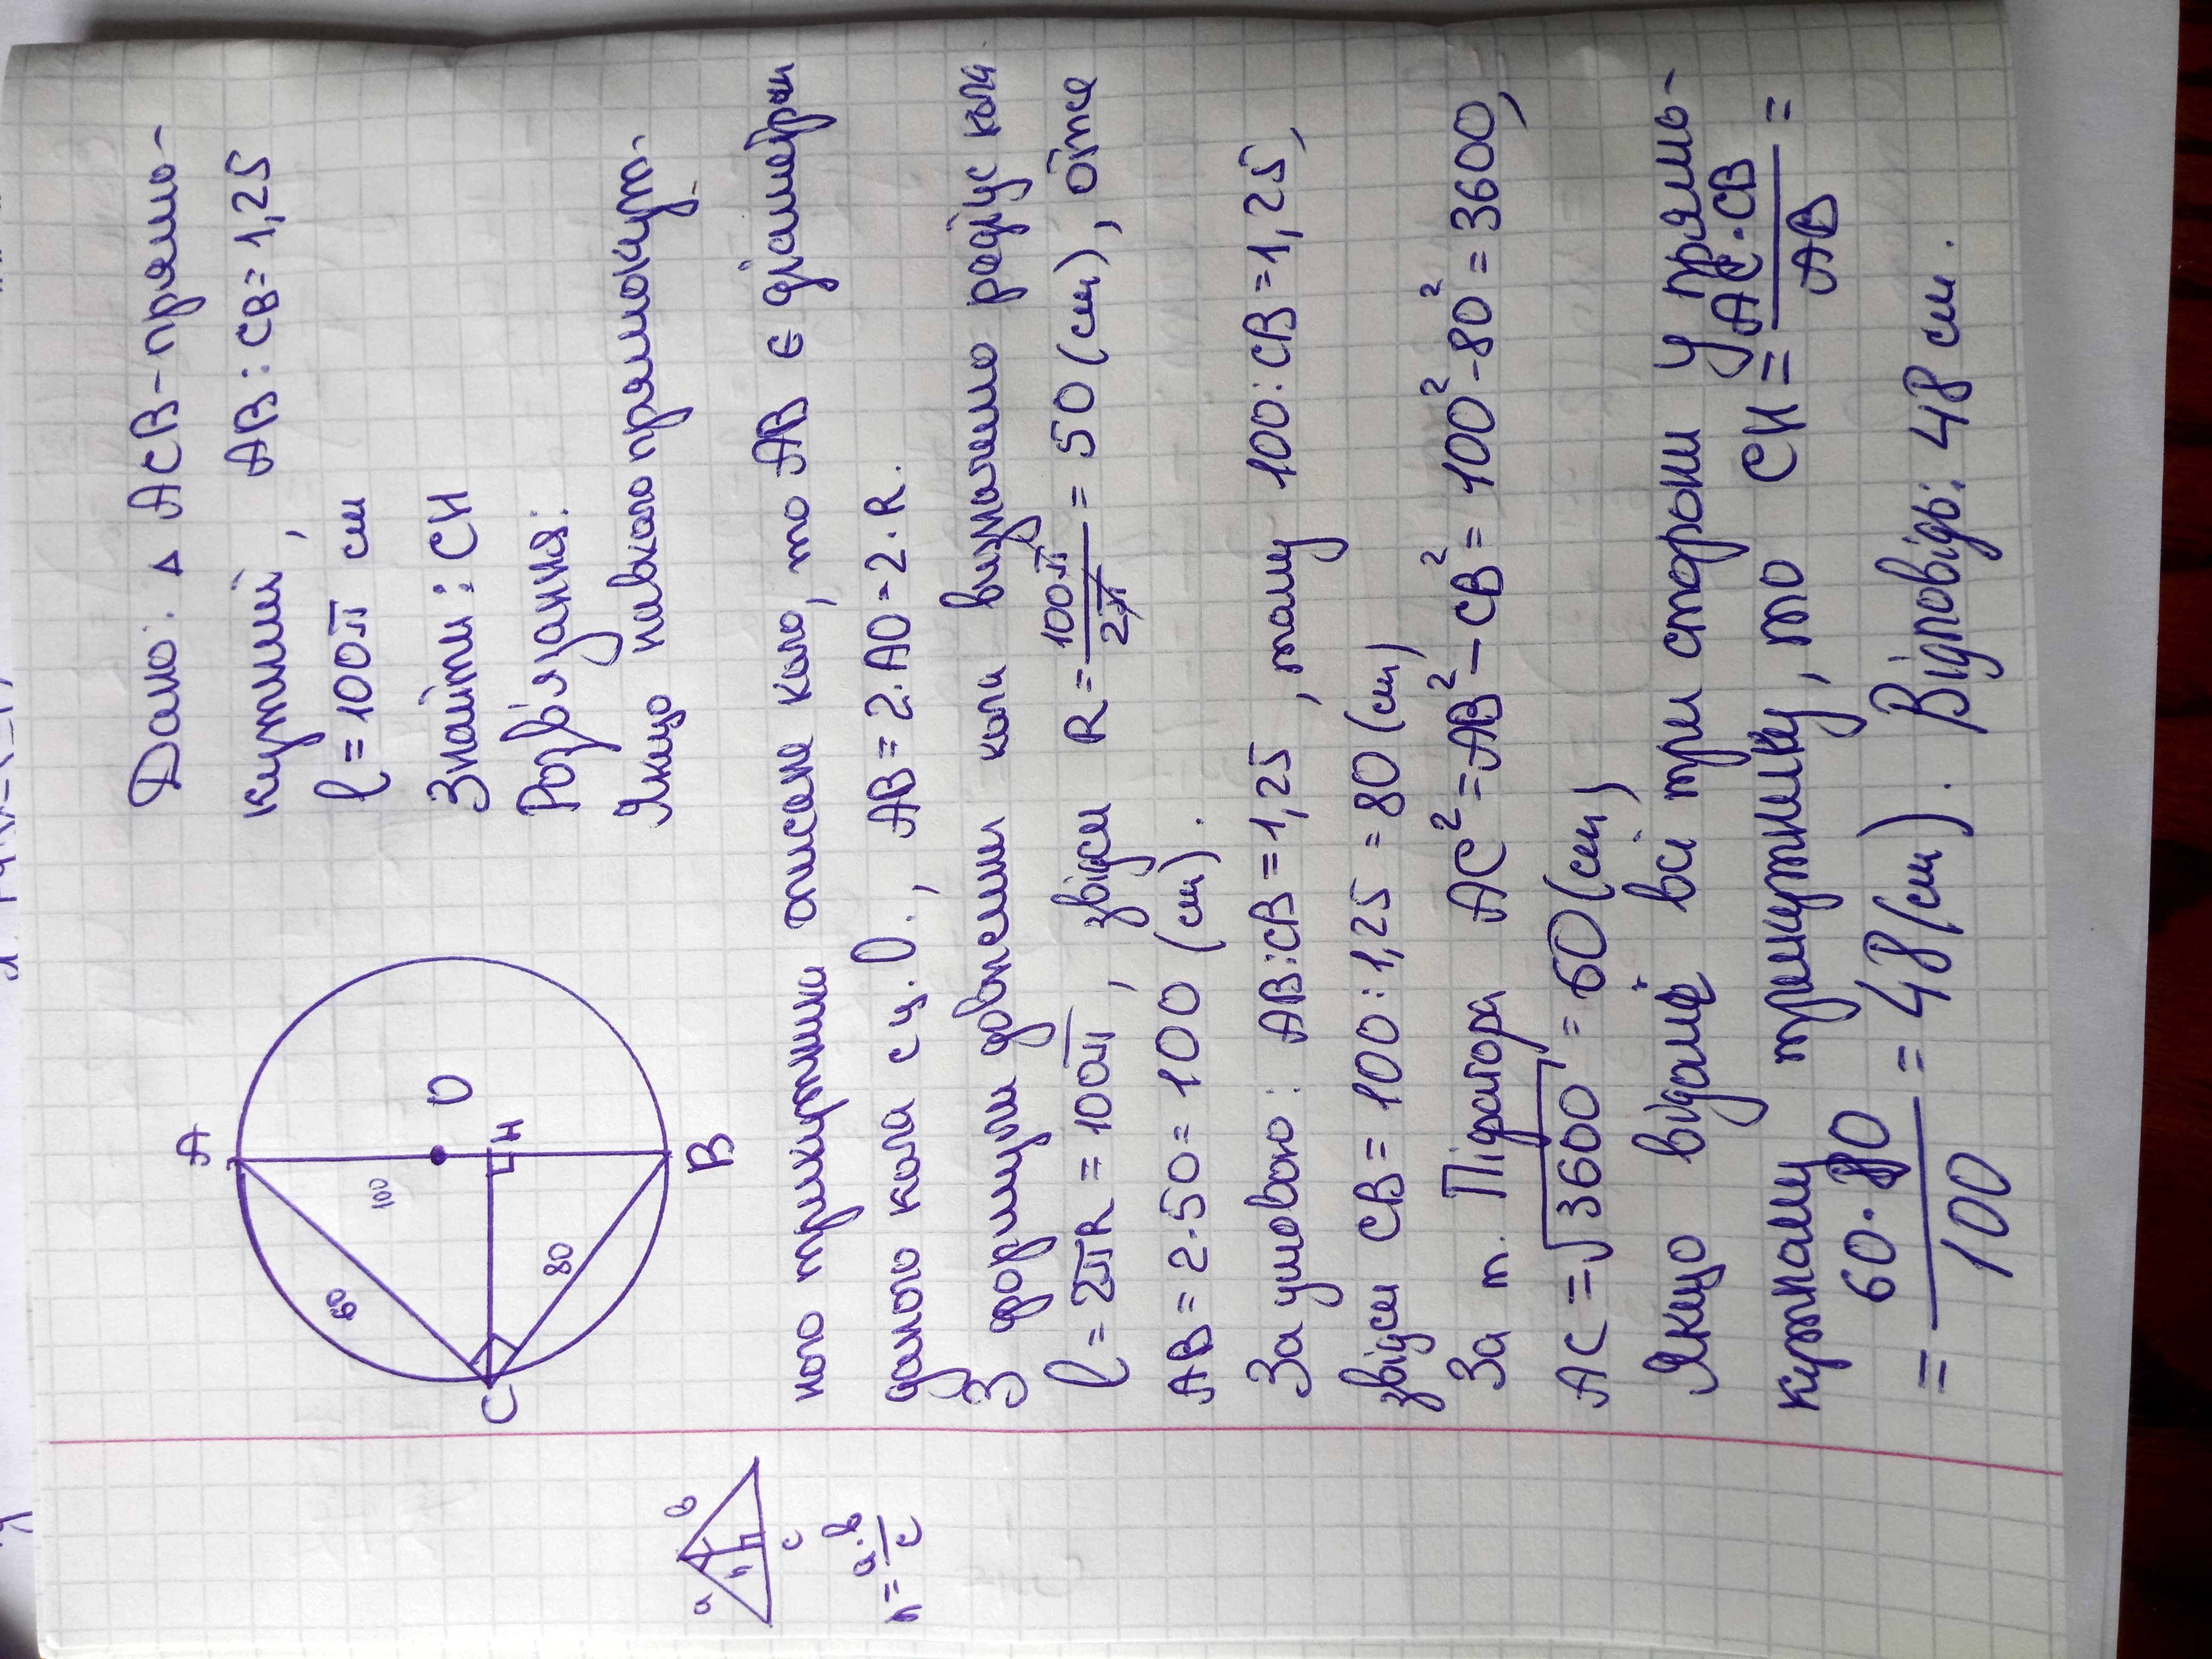 Дано: Δ ACB - прямо-
кутний, AB : CB = 1,25
l = 100π см
Знайти: CH
Розв'язання:
Якщо навколо прямокут-
ного трикутника описане коло, то AB є діаметром
даного кола с ц. O., AB = 2·AO = 2·R.
З формули довжени кола визначаємо радіус кола
l = 2πR = 100π, звідси R = 100π/2π = 50 (см), отже
AB = 2·50 = 100 (см).
За умовою: AB:CB = 1,25, тому 100:CB = 1,25,
звідси CB = 100 : 1,25 = 80 (см)
За т. Піфагора AC² = AB² - CB² = 100² - 80² = 3600,
AC = √3600 = 60 (см)
Якщо відомі всі три сторони у прямо-
кутному трикутнику, то CH = AC·CB/AB =
= 60·80/100 = 48 (см). Відповідь: 48 см.
A
60
100
O
H
80
C
B
a
b
h
c
h = a·b/c